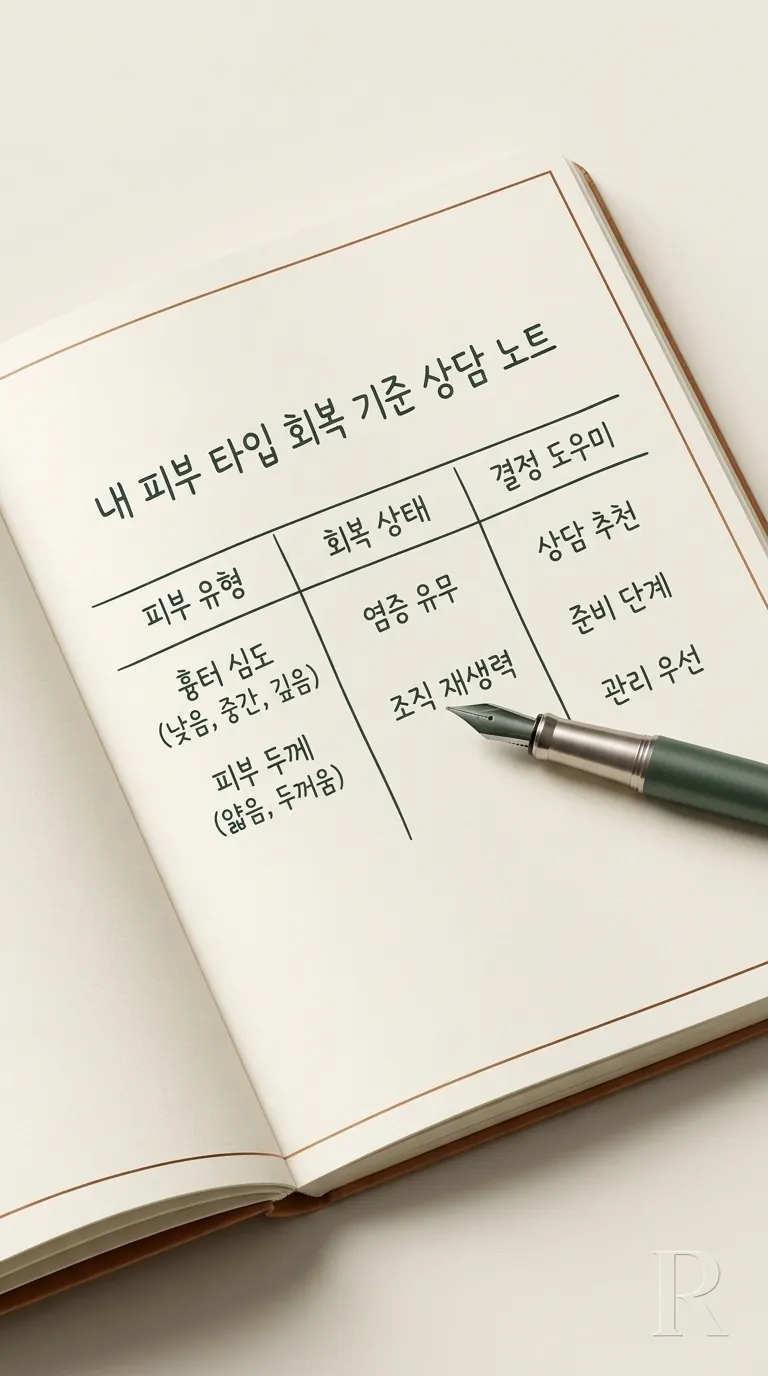 내 피부 타입 회복 기준 상담 노트
피부 유형
회복 상태
결정 도우미
흉터 심도
(낮음, 중간, 깊음)
피부 두께
(얇음, 두꺼움)
염증 유무
조직 재생력
상담 추천
준비 단계
관리 우선
R